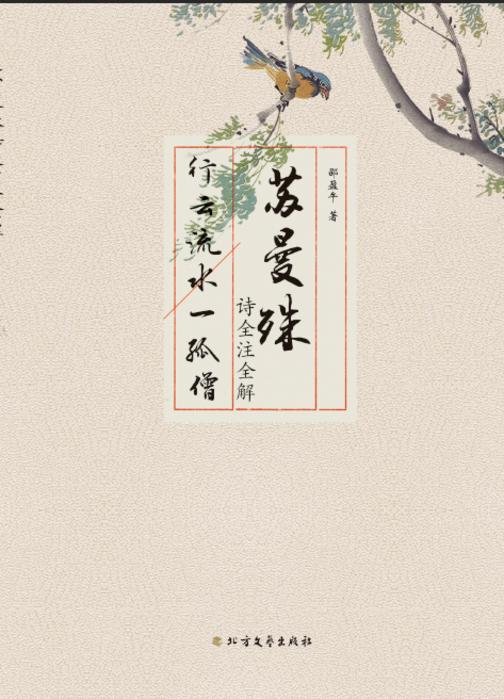 邵盈午 著
苏曼殊
诗全注全解
行云流水一孤僧
北方文艺出版社